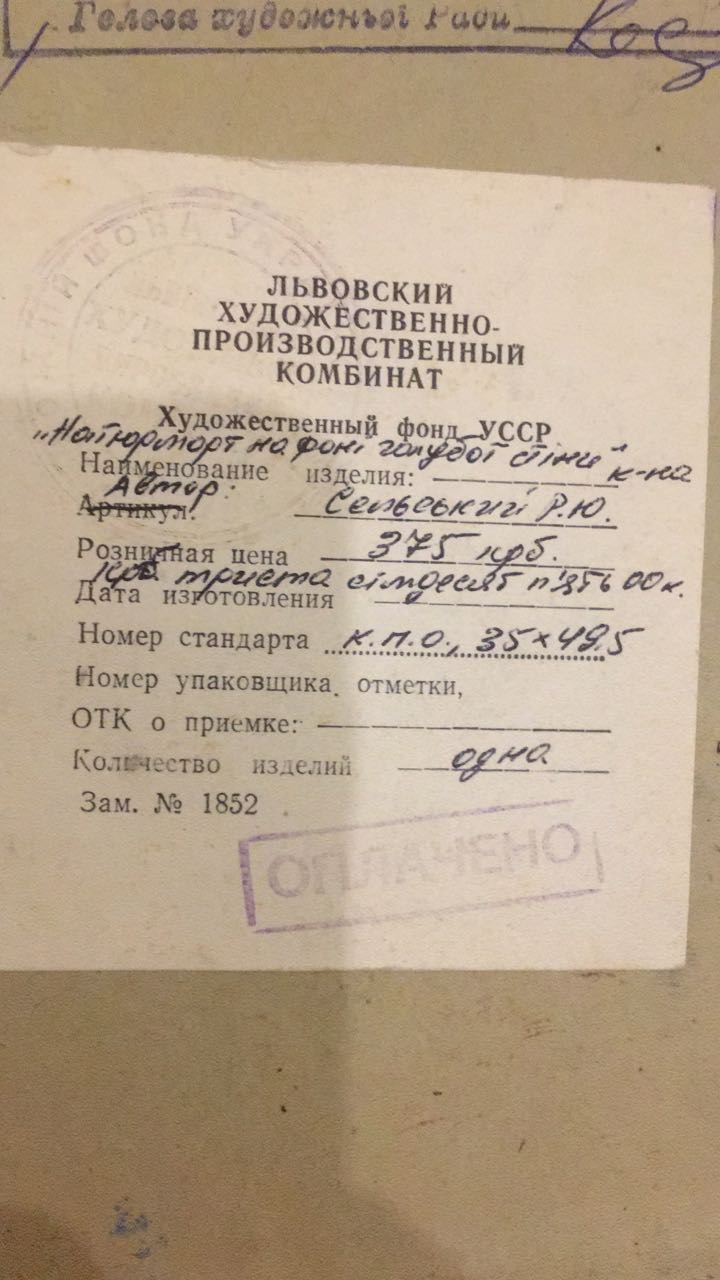 Голова художньої Ради
ЛЬВОВСКИЙ
ХУДОЖЕСТВЕННО-
ПРОИЗВОДСТВЕННЫЙ
КОМБИНАТ
Художественный фонд УССР
„Натюрморт на фоні голубої стіни" к-на
Наименование изделия:
Автор:
Артикул: Сельський Р.Ю.
Розничная цена 375 крб.
крб. триста сімдесят п'ять 00 к.
Дата изготовления
Номер стандарта к.п.о., 35×49.5
Номер упаковщика, отметки,
ОТК о приемке:
Количество изделий одна
Зам. № 1852
ОПЛАЧЕНО
ФОНД УАР